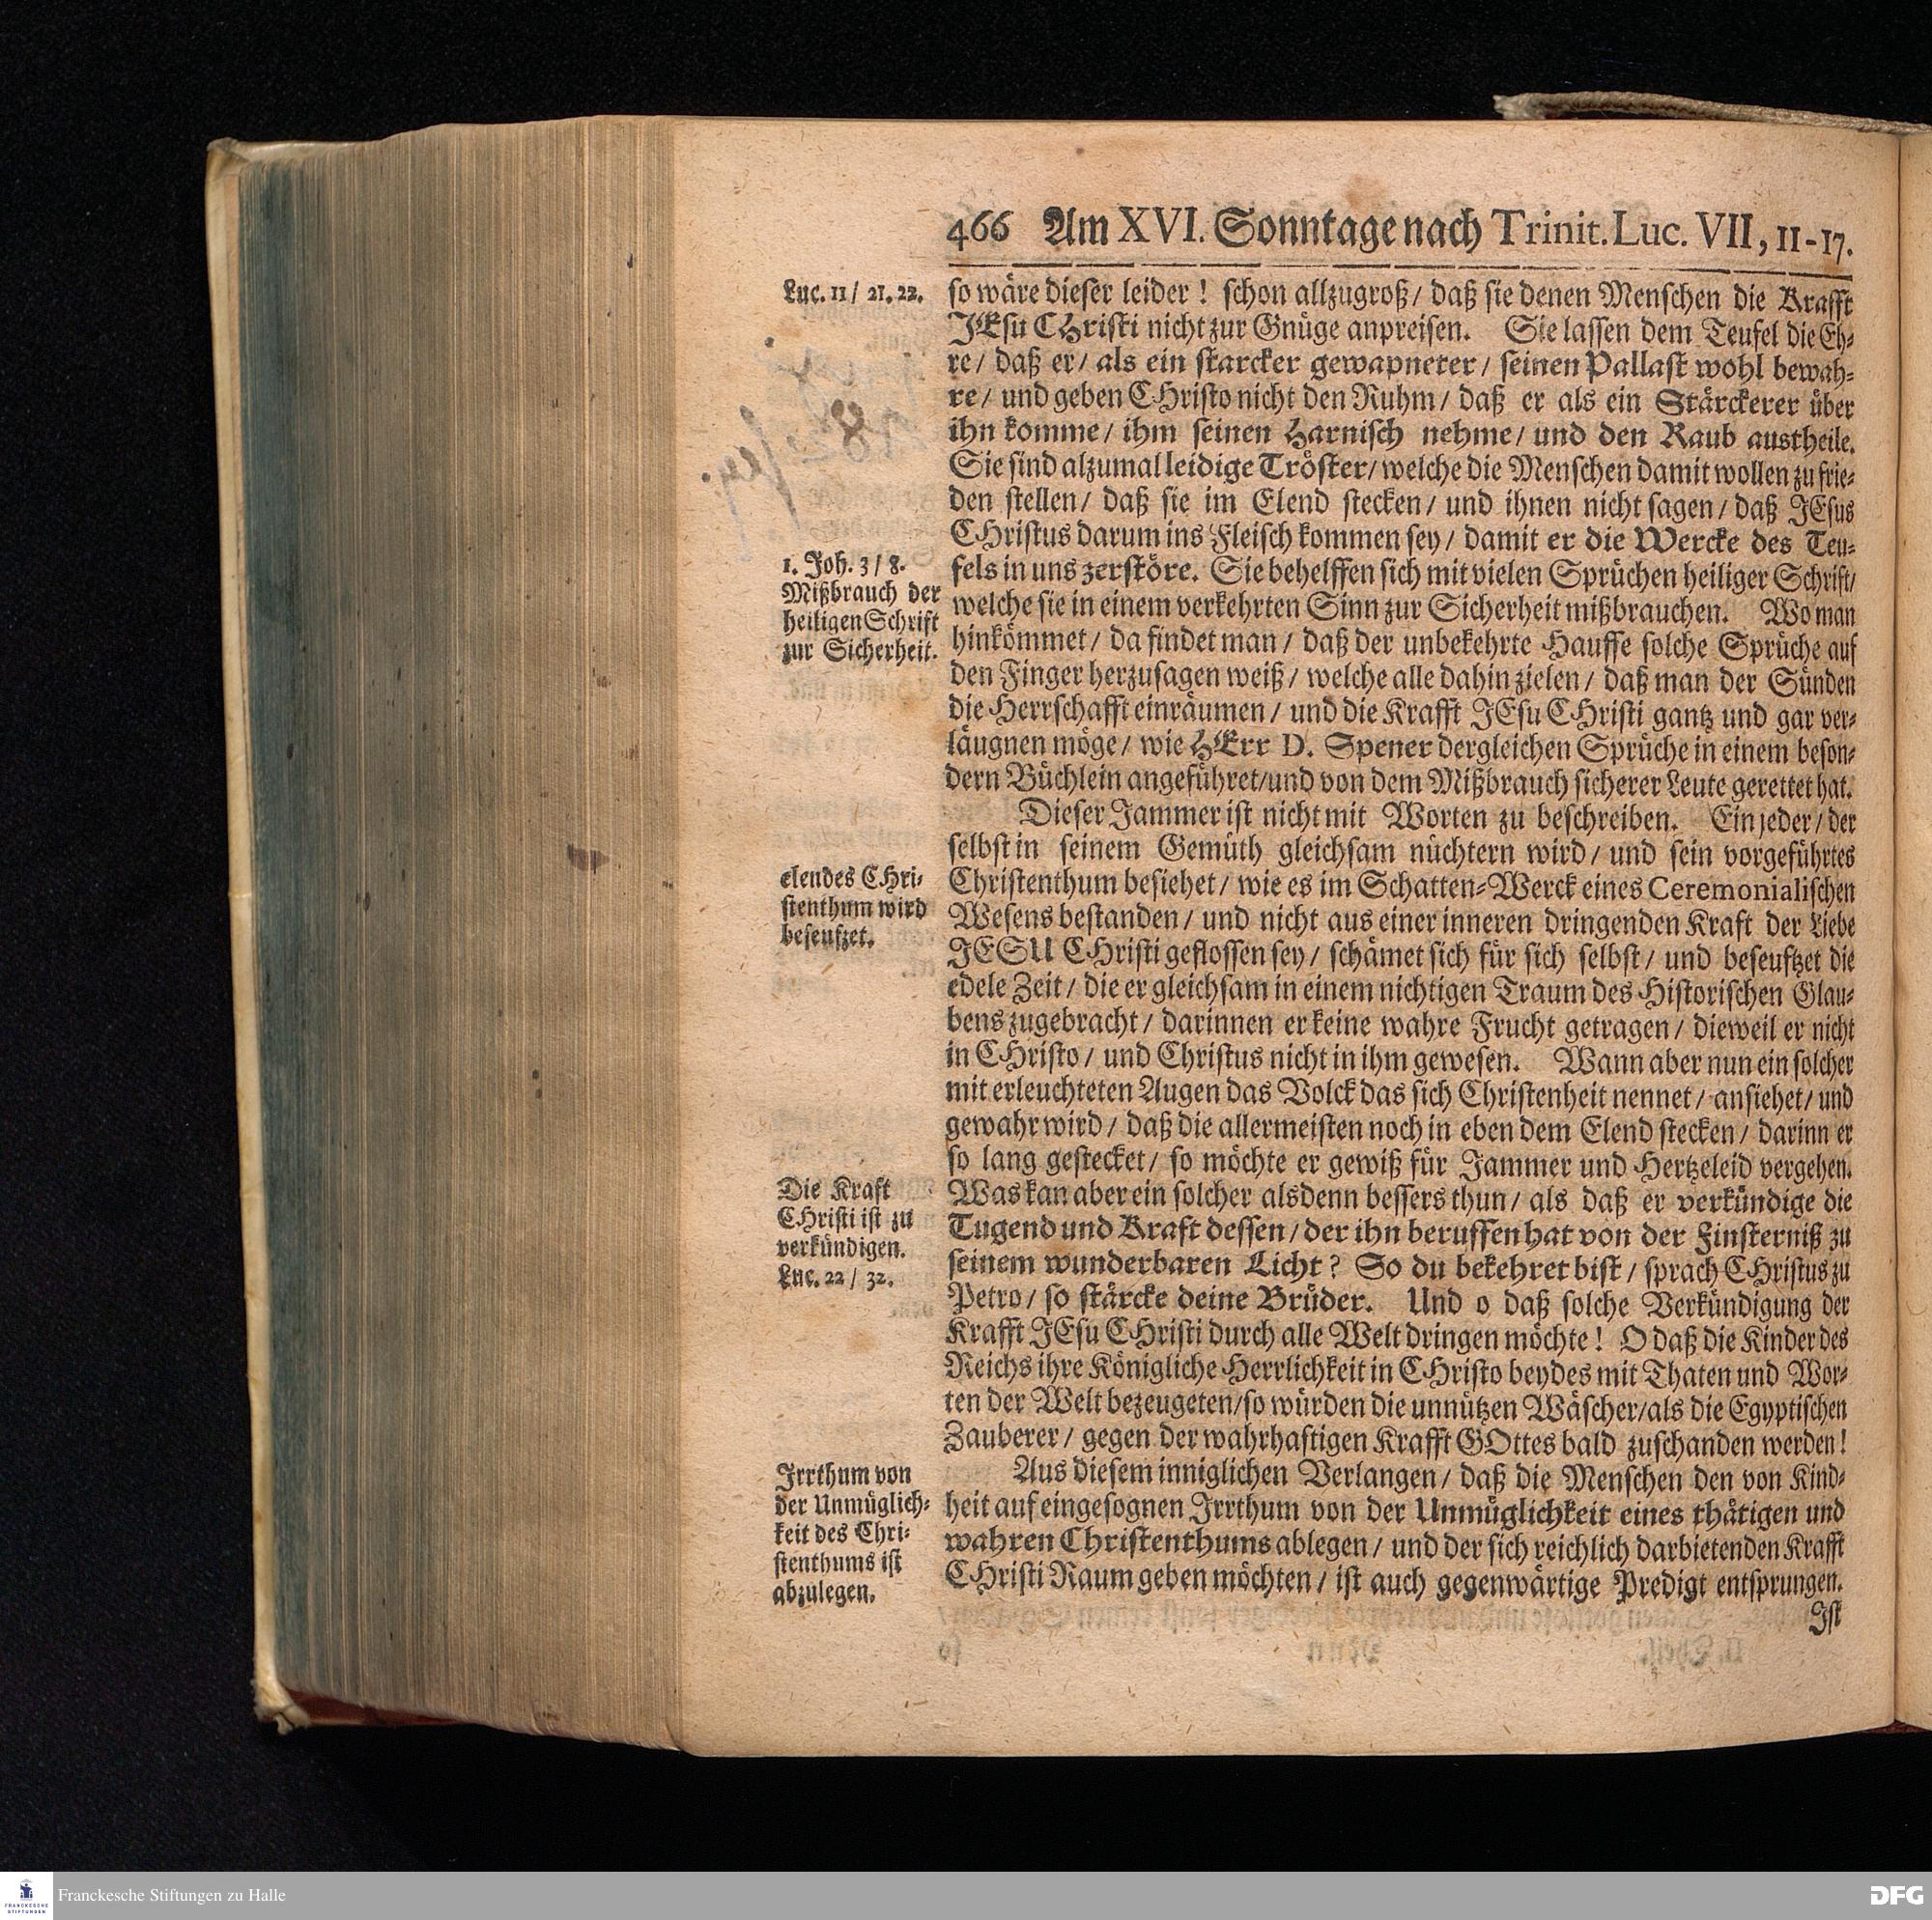 466 Am XVI. Sonntage nach Trinit. Luc. VII, 11-17.
Luc. 11 / 21. 22.
so wäre dieser leider! schon allzugroß / daß sie denen Menschen die Krafft
JEsu CHristi nicht zur Gnüge anpreisen. Sie lassen dem Teufel die Eh-
re / daß er / als ein starcker gewapneter / seinen Pallast wohl bewah-
re / und geben CHristo nicht den Ruhm / daß er als ein Stärckerer über
ihn komme / ihm seinen Harnisch nehme / und den Raub austheile.
Sie sind alzumal leidige Tröster / welche die Menschen damit wollen zu frie-
den stellen / daß sie im Elend stecken / und ihnen nicht sagen / daß JEsus
CHristus darum ins Fleisch kommen sey / damit er die Wercke des Teu-
1. Joh. 3 / 8.
Mißbrauch der
heiligen Schrift
zur Sicherheit.
fels in uns zerstöre. Sie behelffen sich mit vielen Sprüchen heiliger Schrift /
welche sie in einem verkehrten Sinn zur Sicherheit mißbrauchen. Wo man
hinkömmet / da findet man / daß der unbekehrte Hauffe solche Sprüche auf
den Finger herzusagen weiß / welche alle dahin zielen / daß man der Sünden
die Herrschafft einräumen / und die Krafft JEsu CHristi gantz und gar ver-
läugnen möge / wie HErr D. Spener dergleichen Sprüche in einem beson-
dern Büchlein angeführet / und von dem Mißbrauch sicherer Leute gerettet hat.
Dieser Jammer ist nicht mit Worten zu beschreiben. Ein jeder / der
selbst in seinem Gemüth gleichsam nüchtern wird / und sein vorgeführtes
elendes CHri-
stenthum wird
beseufzet.
Christenthum besiehet / wie es im Schatten-Werck eines Ceremonialischen
Wesens bestanden / und nicht aus einer inneren dringenden Kraft der Liebe
JESU CHristi geflossen sey / schämet sich für sich selbst / und beseuftzet die
edele Zeit / die er gleichsam in einem nichtigen Traum des Historischen Glau-
bens zugebracht / darinnen er keine wahre Frucht getragen / dieweil er nicht
in CHristo / und Christus nicht in ihm gewesen. Wann aber nun ein solcher
mit erleuchteten Augen das Volck das sich Christenheit nennet / ansiehet / und
gewahr wird / daß die allermeisten noch in eben dem Elend stecken / darinn er
so lang gestecket / so möchte er gewiß für Jammer und Hertzeleid vergehen.
Die Kraft
CHristi ist zu
verkündigen.
Luc. 22 / 32.
Was kan aber ein solcher alsdenn bessers thun / als daß er verkündige die
Tugend und Kraft dessen / der ihn beruffen hat von der Finsterniß zu
seinem wunderbaren Licht? So du bekehret bist / sprach CHristus zu
Petro / so stärcke deine Brüder. Und o daß solche Verkündigung der
Krafft JEsu CHristi durch alle Welt dringen möchte! O daß die Kinder des
Reichs ihre Königliche Herrlichkeit in CHristo beydes mit Thaten und Wor-
ten der Welt bezeugeten / so würden die unnützen Wäscher / als die Egyptischen
Zauberer / gegen der wahrhaftigen Krafft GOttes bald zuschanden werden!
Irrthum von
der Unmüglich-
keit des Chri-
stenthums ist
abzulegen.
Aus diesem inniglichen Verlangen / daß die Menschen den von Kind-
heit auf eingesognen Irrthum von der Unmüglichkeit eines thätigen und
wahren Christenthums ablegen / und der sich reichlich darbietenden Krafft
CHristi Raum geben möchten / ist auch gegenwärtige Predigt entsprungen.
Ist
Franckesche Stiftungen zu Halle
FRANCKESCHE
STIFTUNGEN
DFG